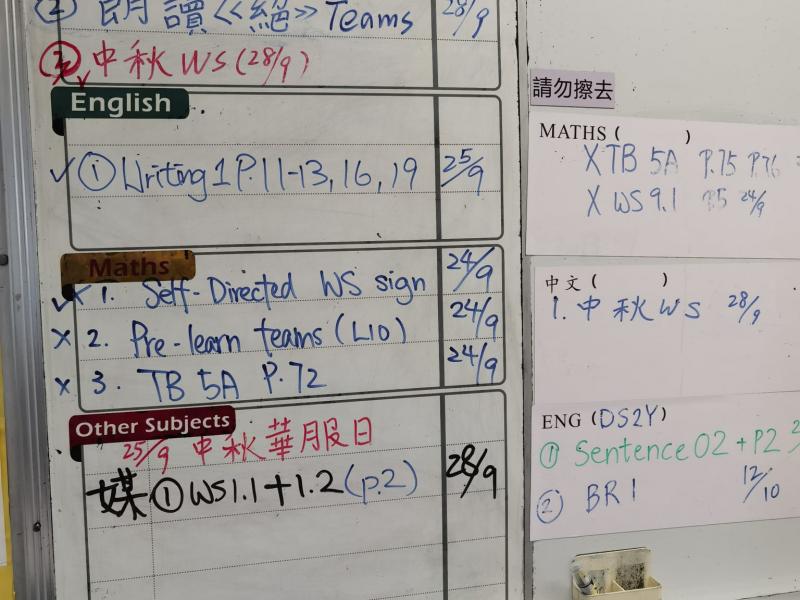 ② 朗讀《絕》Teams 28/9
③ 中秋WS(28/9)
English
✓ ① Writing1 P.11-13, 16, 19 25/9
Maths
✓ x 1. Self-Directed WS sign 24/9
x 2. Pre-learn teams (L10) 24/9
x 3. TB 5A P.72 24/9
Other Subjects
25/9 中秋華服日
媒 ① WS1.1+1.2 (p.2) 28/9
請勿擦去
MATHS ( )
X TB 5A P.75 P.76
X WS 9.1 24/9
中文 ( )
1. 中秋WS 28/9
ENG (DS2Y)
① Sentence 02 + P2
② BR 1 12/10